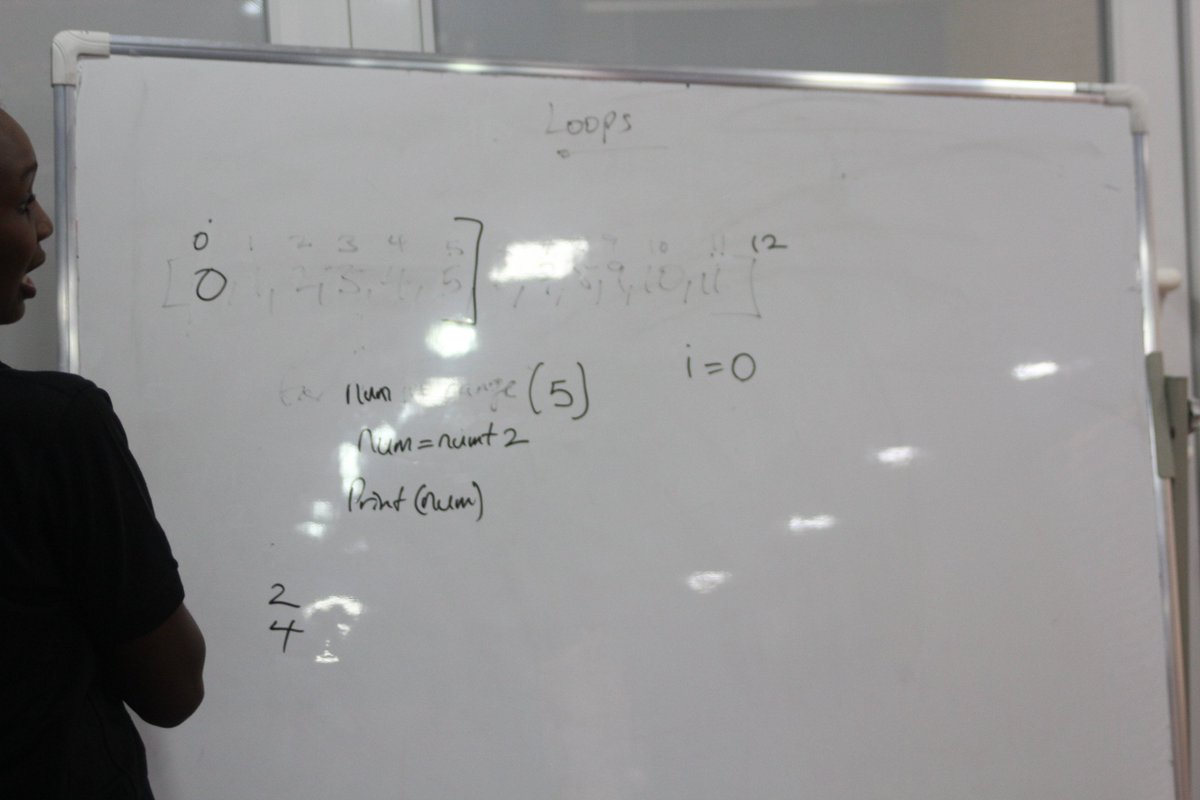 Loops
0 1 2 3 4 5 9 10 11 12
[0, 1, 2, 3, 4, 5] , 7, 8, 9, 10, 11]
for num in range (5)
i=0
num=num+2
Print (num)
2
4